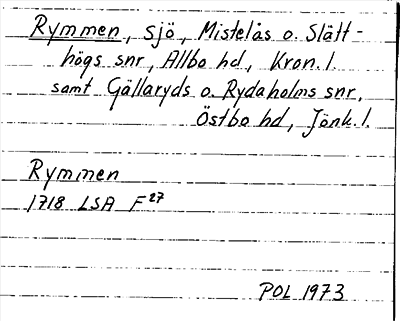 Rymmen, sjö, Mistelås o. Slätt-
högs snr, Allbo hd, Kron. l.
samt Gällaryds o. Rydaholms snr,
Östbo hd, Jönk. l.
Rymmen
1718 LSA F27
POL 1973